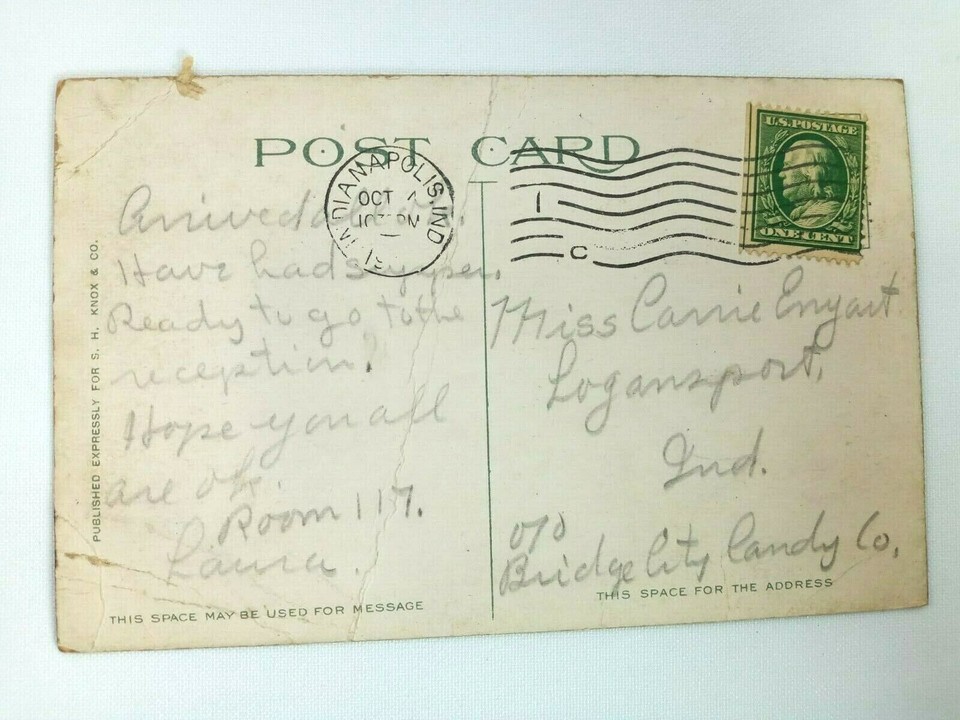 POST CARD
U.S. POSTAGE
ONE CENT
INDIANAPOLIS, IND.
OCT
PM
1
C
Arrived
Have had supper.
Ready to go to the
reception.
Hope you all
are ok.
Room 117.
Laura.
Miss Carrie Enyart
Logansport,
Ind.
c/o
Bridge City Candy Co,
PUBLISHED EXPRESSLY FOR S. H. KNOX & CO.
THIS SPACE MAY BE USED FOR MESSAGE
THIS SPACE FOR THE ADDRESS